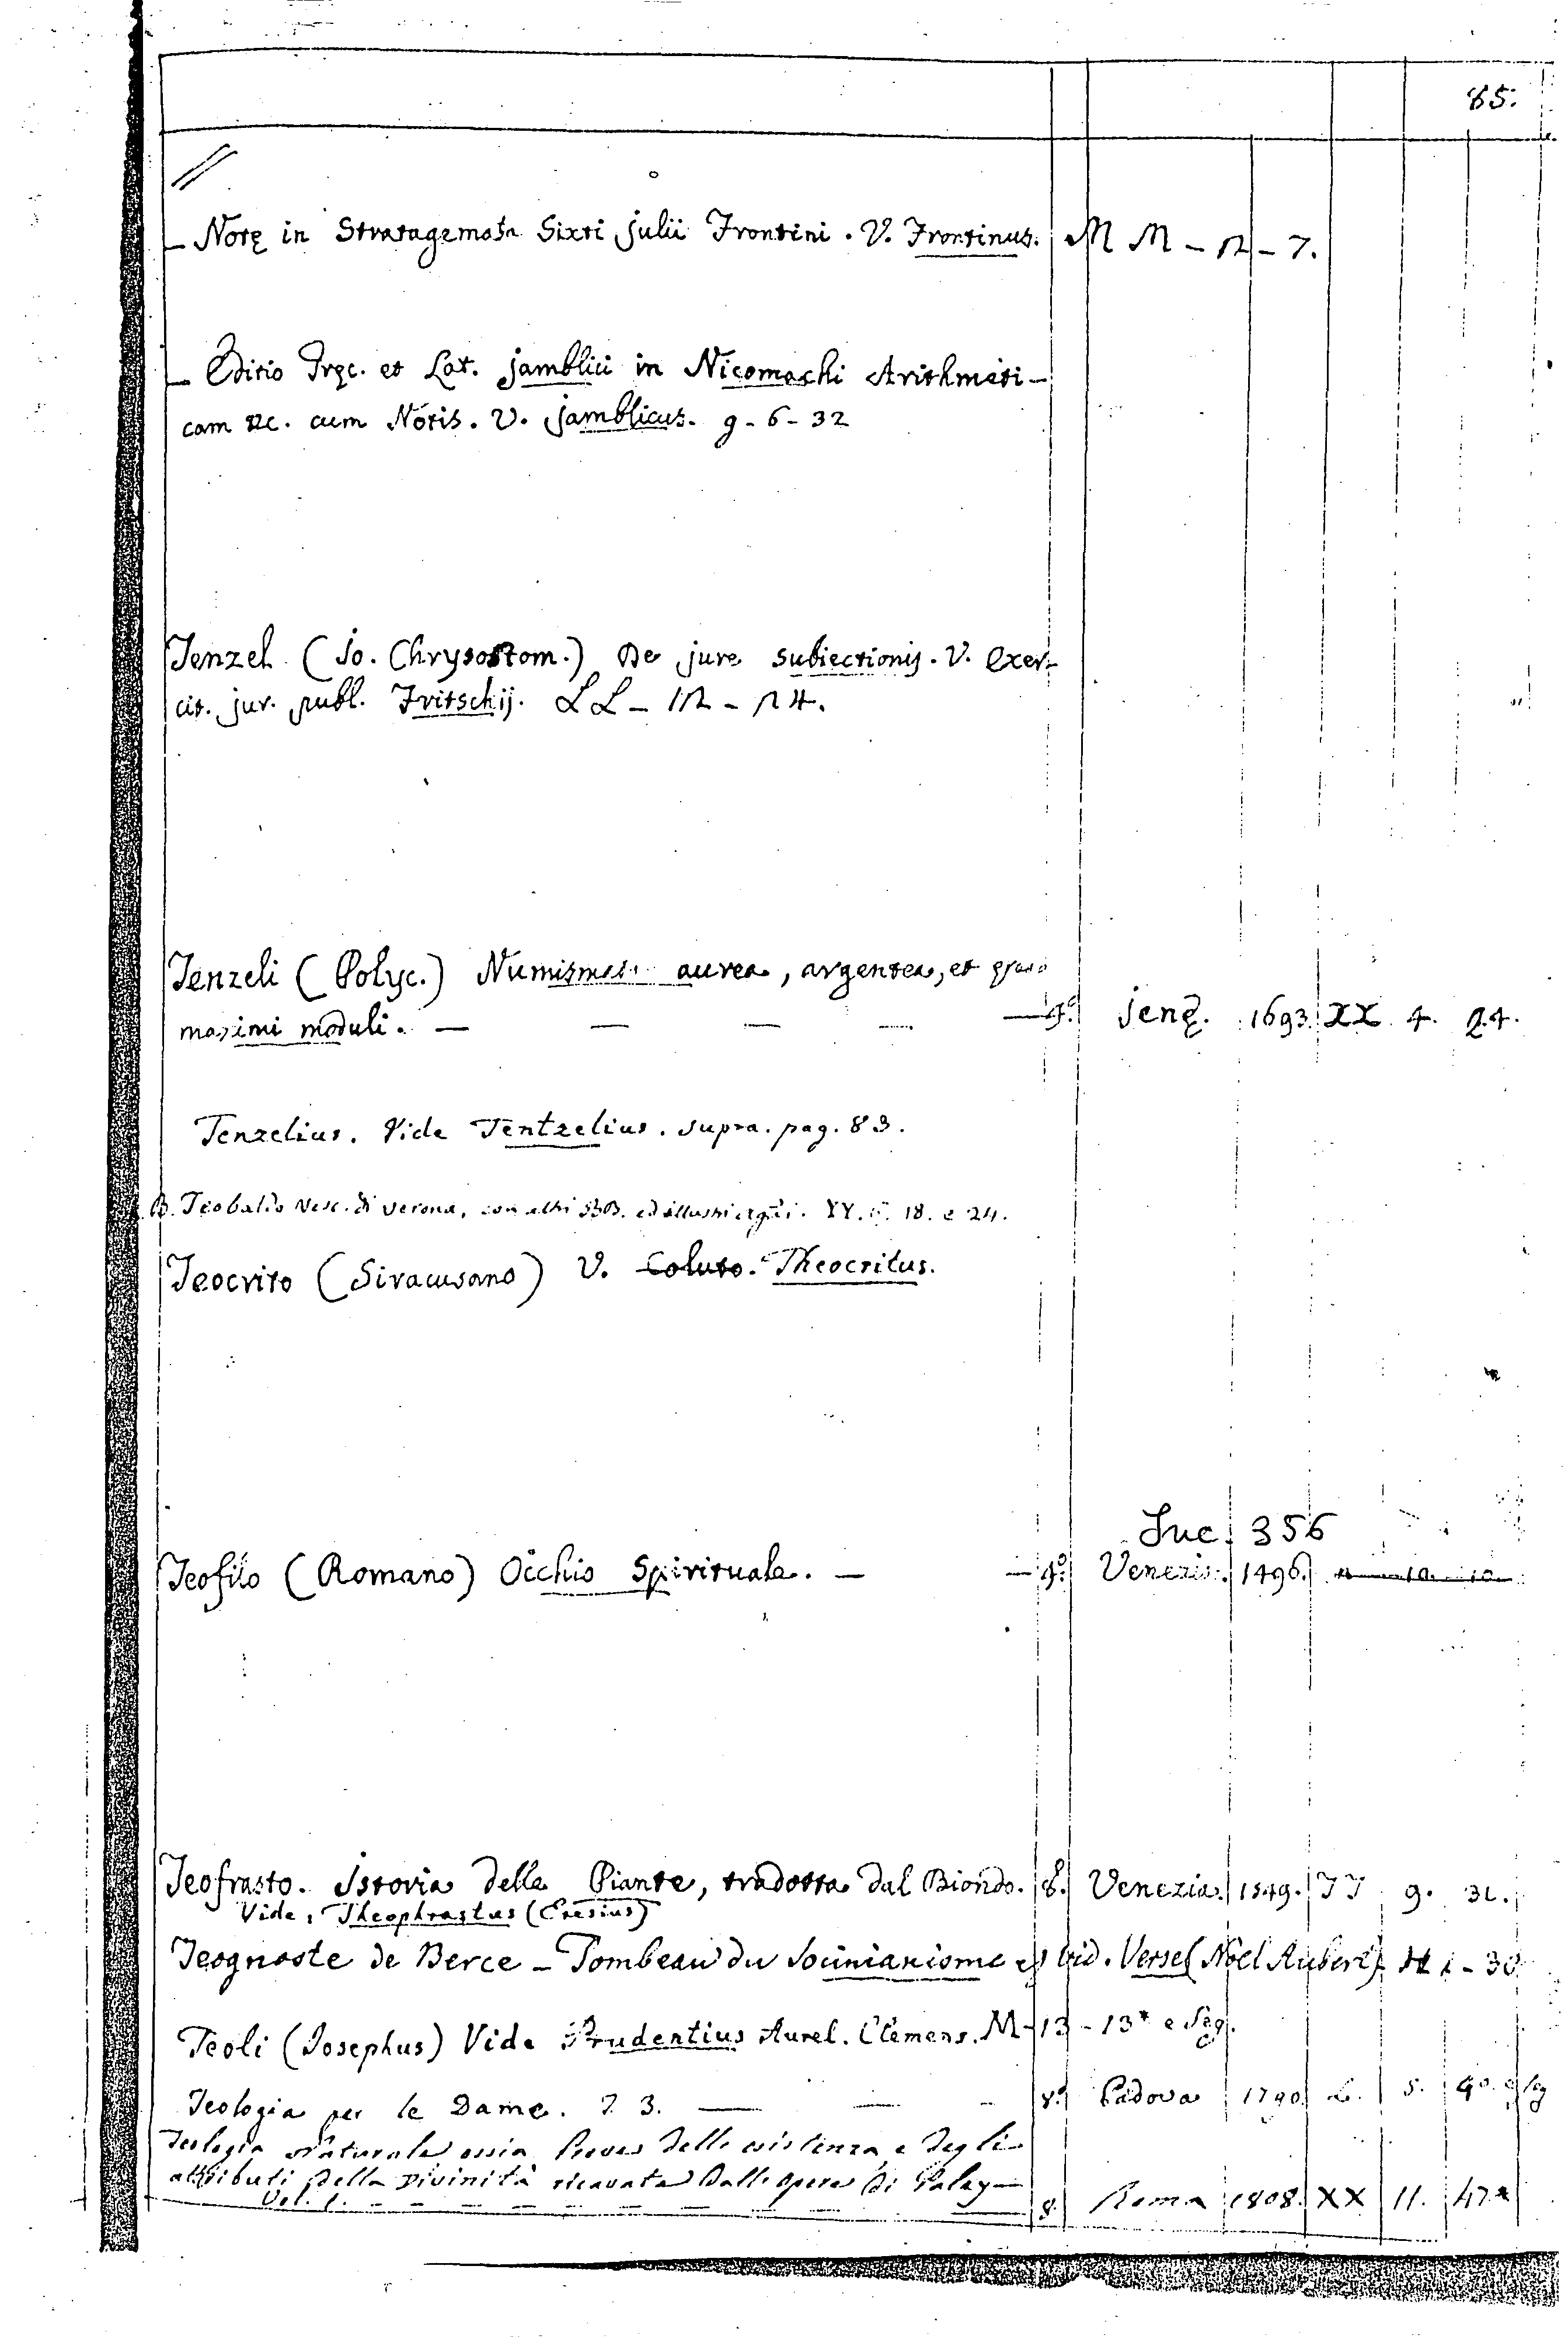 85.
– Notę in Stratagemata Sixti Julii Frontini. V. Frontinus. M M – 12 – 7.
– Editio Gręc. et Lat. Jamblici in Nicomachi Arithmeti-
cam &c. cum Notis. V. Jamblicus. 9 - 6 - 32
Tenzel (Jo. Chrysostom.) De jure subiectionis. V. Exer-
cit. jur. publ. Fritschij. L L – 12 – 24.
Tenzeli (Polyc.) Numismata aurea, argentea, et
maximi moduli. — — — — — 4.° Jenę. 1693. XX 4. 24.
Tenzelius. Vide Tentzelius. supra. pag. 83.
B. Teobaldo Vesc. di Verona, con altri SSB. ed illustri 18. e 24.
Teocrito (Siracusano) V. Coluto. Theocritus.
Inc. 356
Teofilo (Romano) Occhio Spirituale. — — 4.° Venezia. 1496.
Teofrasto. Istoria delle Piante, tradotta dal Biondo. 8. Venezia. 1549. JJ 9. 31.
Vide, Theophrastus (Eresius)
Teognoste de Berce – Tombeau du Socinianisme Vid. Versè (Noel Aubert) – 30
Teoli (Josephus) Vide Prudentius Aurel. Clemens. M – 13 – 13* e Seg.
Teologia per le Dame. T. 3. — — - 8.° Padova 1790. L. 5. 40. e seg
Teologia Naturale ossia Prove dell'esistenza, e degli
attributi della Divinità ricavate dall'opere di Paley —
Vol. 1. – – – – – – 8. Roma 1808. XX 11. 47.*